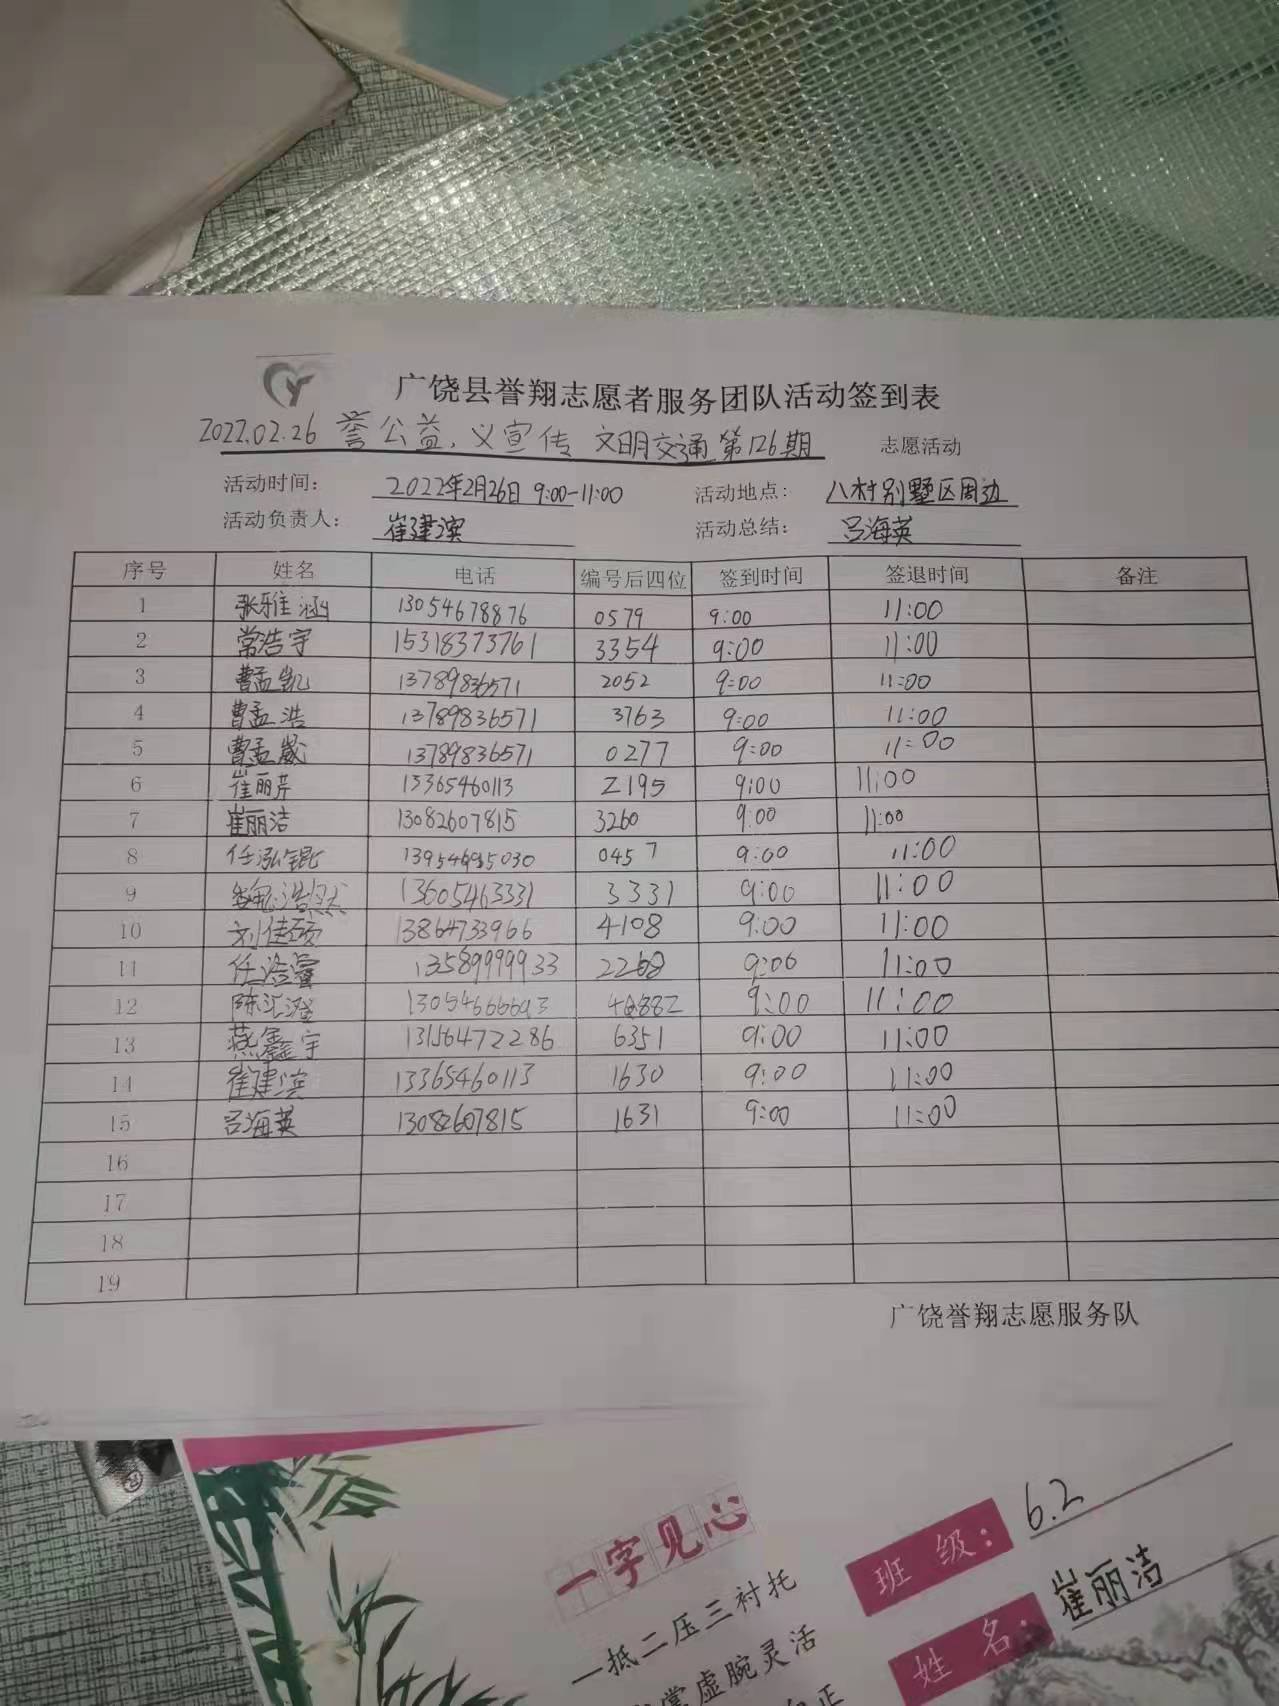 广饶县誉翔志愿者服务团队活动签到表
2022.02.26 誉公益,义宣传 文明交通第126期 志愿活动
活动时间: 2022年2月26日 9:00-11:00 活动地点: 八村别墅区周边
活动负责人: 崔建滨 活动总结: 吕海英
序号 姓名 电话 编号后四位 签到时间 签退时间 备注
1 张雅涵 13054678876 0579 9:00 11:00
2 常浩宇 15318373761 3354 9:00 11:00
3 曹孟凯 13789836571 2052 9:00 11:00
4 曹孟浩 13789836571 3763 9:00 11:00
5 曹孟崴 13789836571 0277 9:00 11:00
6 崔丽芹 13365460113 2195 9:00 11:00
7 崔丽洁 13082607815 3260 9:00 11:00
8 任泓锟 0457 9:00 11:00
9 魏浩然 13605463331 3331 9:00 11:00
10 刘佳硕 13864733966 4108 9:00 11:00
11 任浩睿 13589999933 2268 9:00 11:00
12 陈汇澄 9:00 11:00
13 燕鑫宇 13156472286 6351 9:00 11:00
14 崔建滨 13365460113 1630 9:00 11:00
15 吕海英 13082607815 1631 9:00 11:00
16
17
18
19
广饶誉翔志愿服务队
一字见心
一抵二压三衬托
掌虚腕灵活
正
班级: 6.2
姓名: 崔丽洁